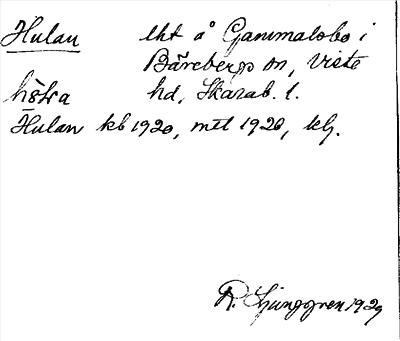 Hulan lht å Gammalobo i
Bärebergs sn, Viste
hd, Skarab. l.
Hulan kb 1920, mtl 1920, klj.
R. Ljunggren 1929